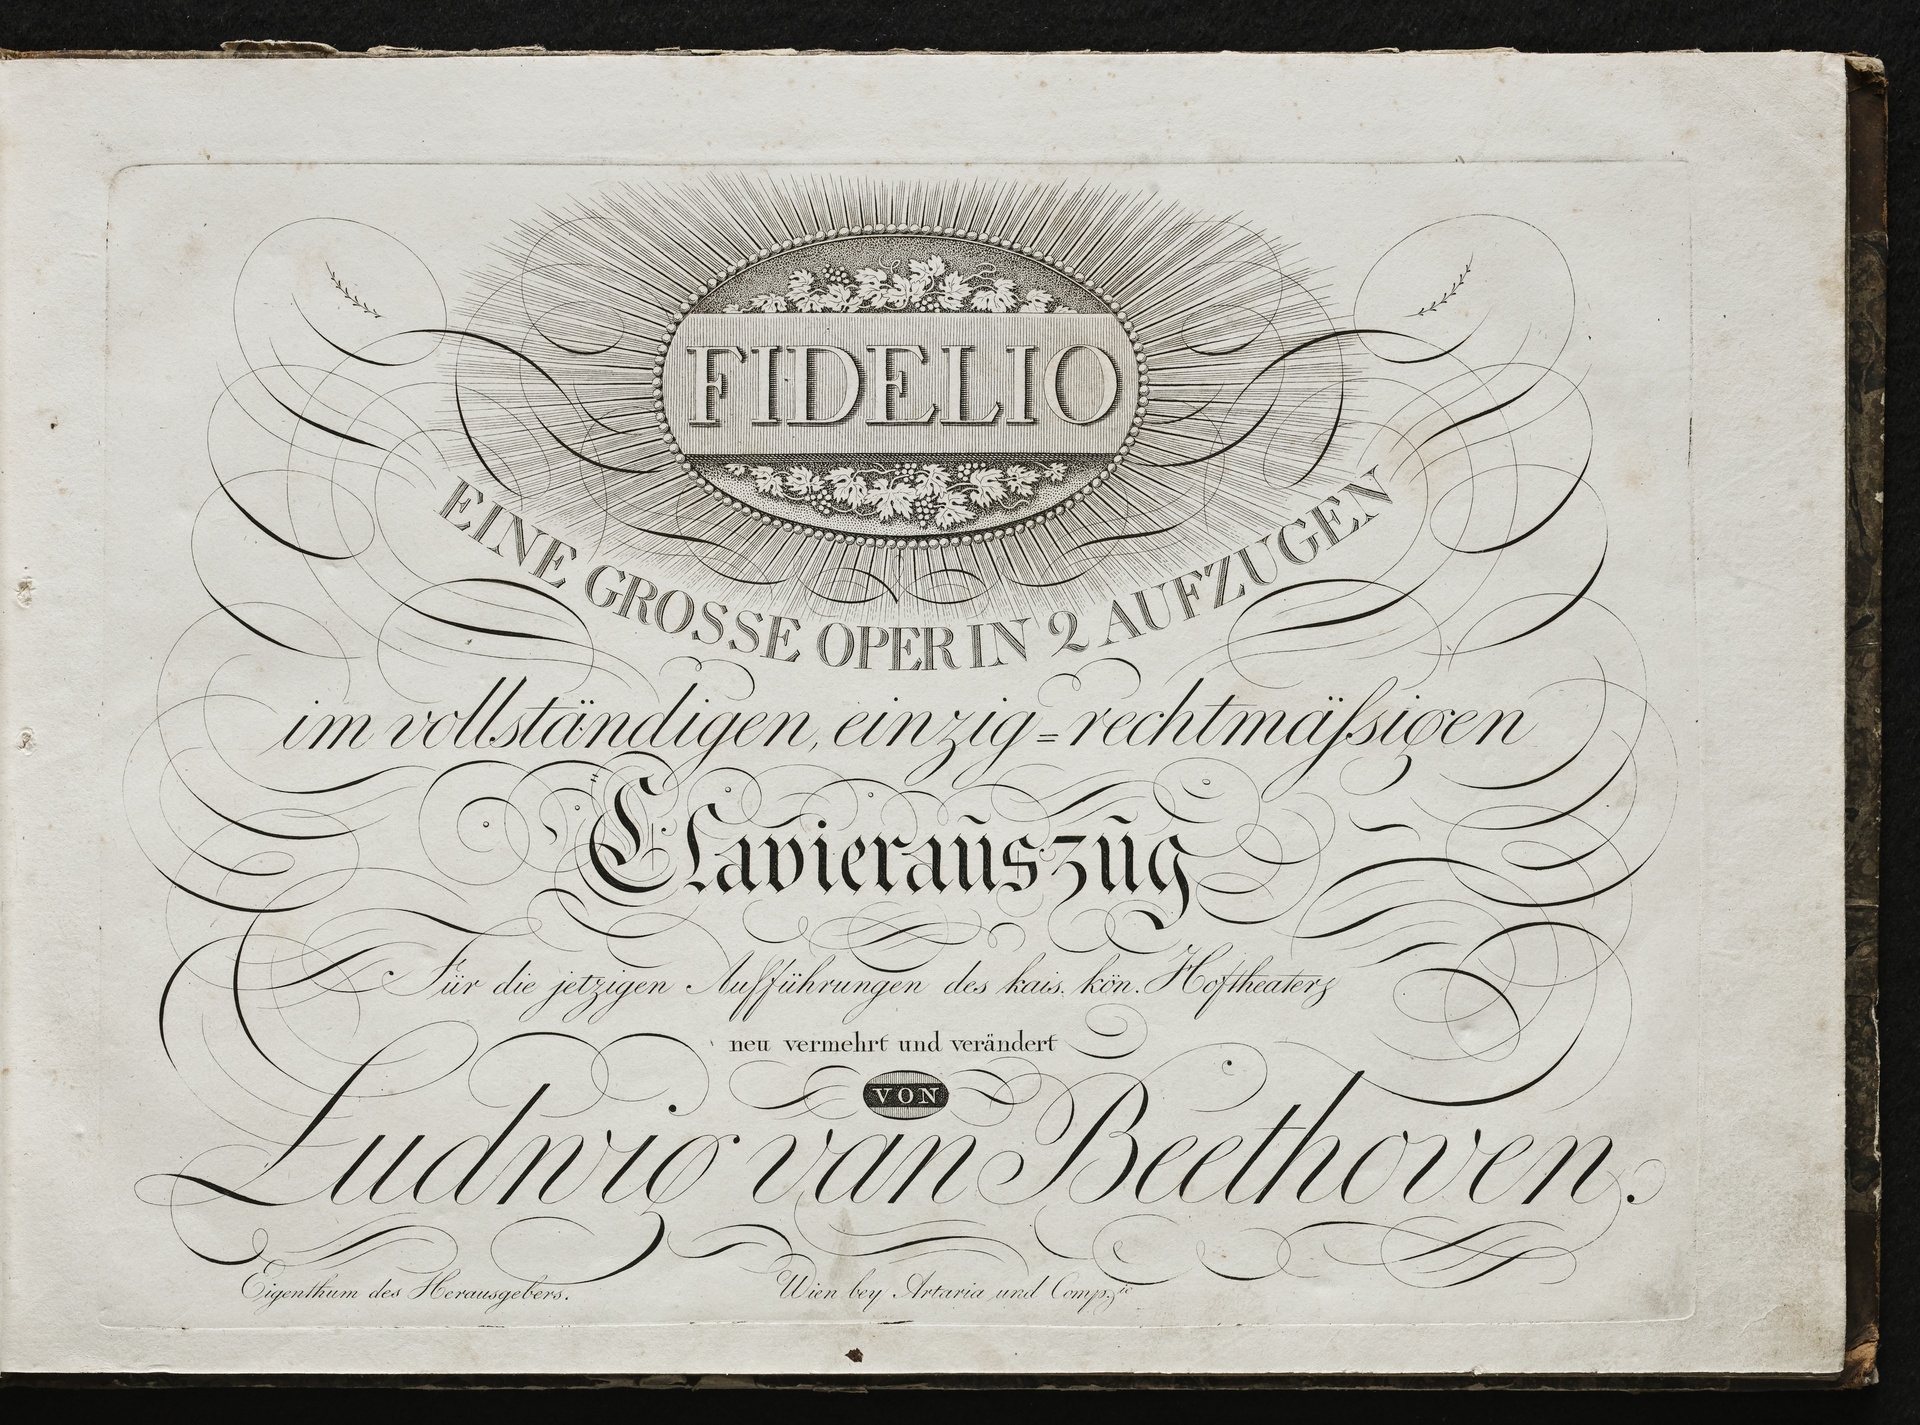 FIDELIO
EINE GROSSE OPER IN 2 AUFZUGEN
im vollständigen, einzig=rechtmäſsigen
Clavieraūszūg
Für die jetzigen Aufführungen des kais. kön. Hoftheaters
neu vermehrt und verändert
VON
Ludwig van Beethoven.
Eigenthum des Herausgebers.
Wien bey Artaria und Comp.ie